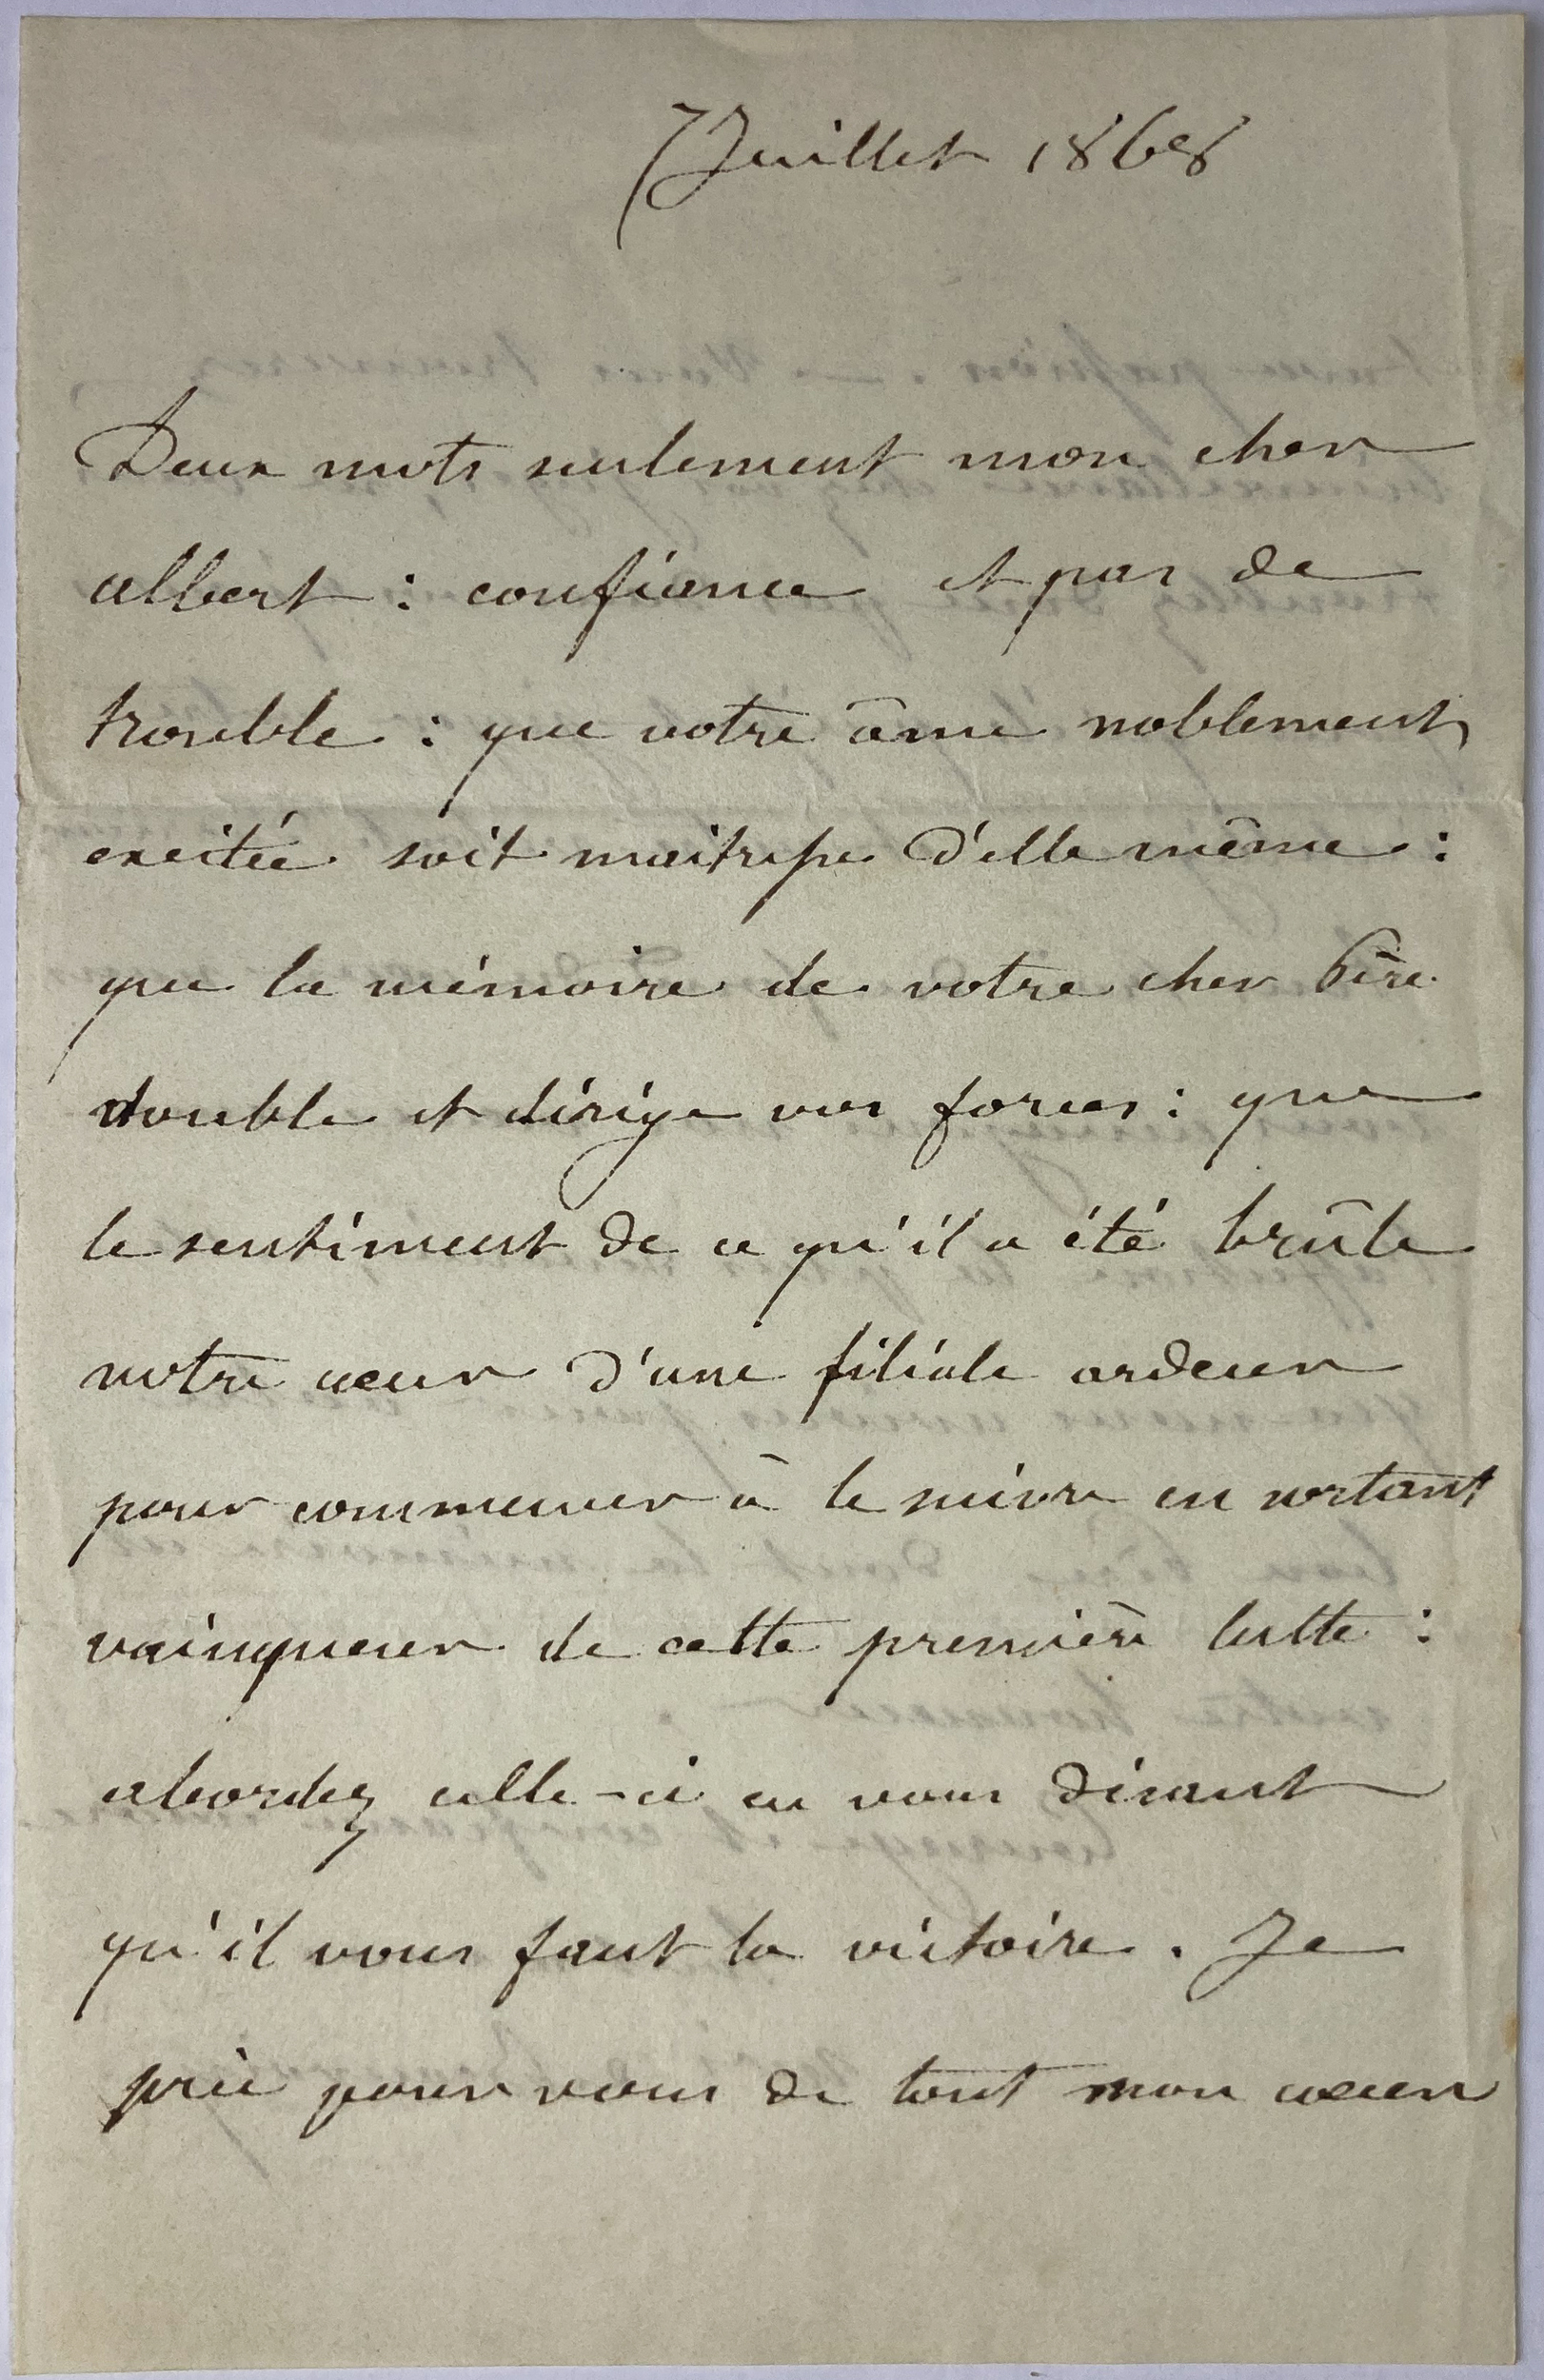 7 Juillet 1868
Deux mots seulement mon cher
Albert : confiance et pas de
trouble : que votre âme noblement
excitée soit maitresse d'elle même :
que la mémoire de votre cher Père
double et dirige vos forces : que
le sentiment de ce qu'il a été brûle
votre cœur d'une filiale ardeur
pour commencer à le suivre en sortant
vainqueur de cette première lutte :
abordez celle-ci en vous disant
qu'il vous faut la victoire. Je
prie pour vous de tout mon cœur